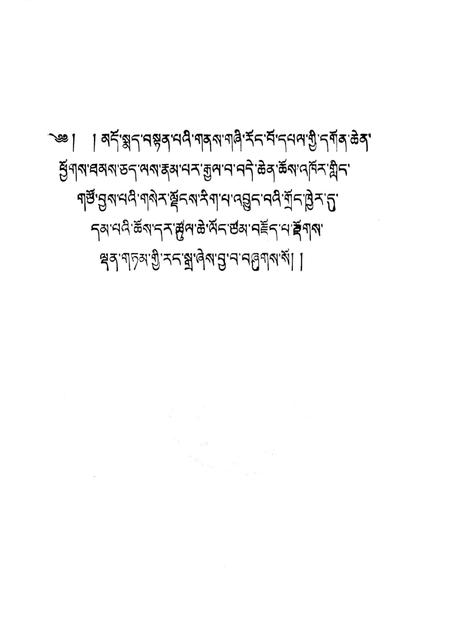 ༄༅། །མདོ་སྨད་བསྟན་པའི་གནས་གཞི་རོང་བོ་དཔལ་གྱི་དགོན་ཆེན་
ཕྱོགས་ཐམས་ཅད་ལས་རྣམ་པར་རྒྱལ་བ་བདེ་ཆེན་ཆོས་འཁོར་གླིང་
གཙོ་བྱས་པའི་གསེར་ལྗོངས་རིག་པ་འབྱུང་བའི་གྲོང་ཁྱེར་དུ་
དམ་པའི་ཆོས་དར་ཚུལ་ཆེ་ལོང་ཙམ་བརྗོད་པ་རྫོགས་
ལྡན་གཏམ་གྱི་རང་སྒྲ་ཞེས་བྱ་བ་བཞུགས་སོ། །